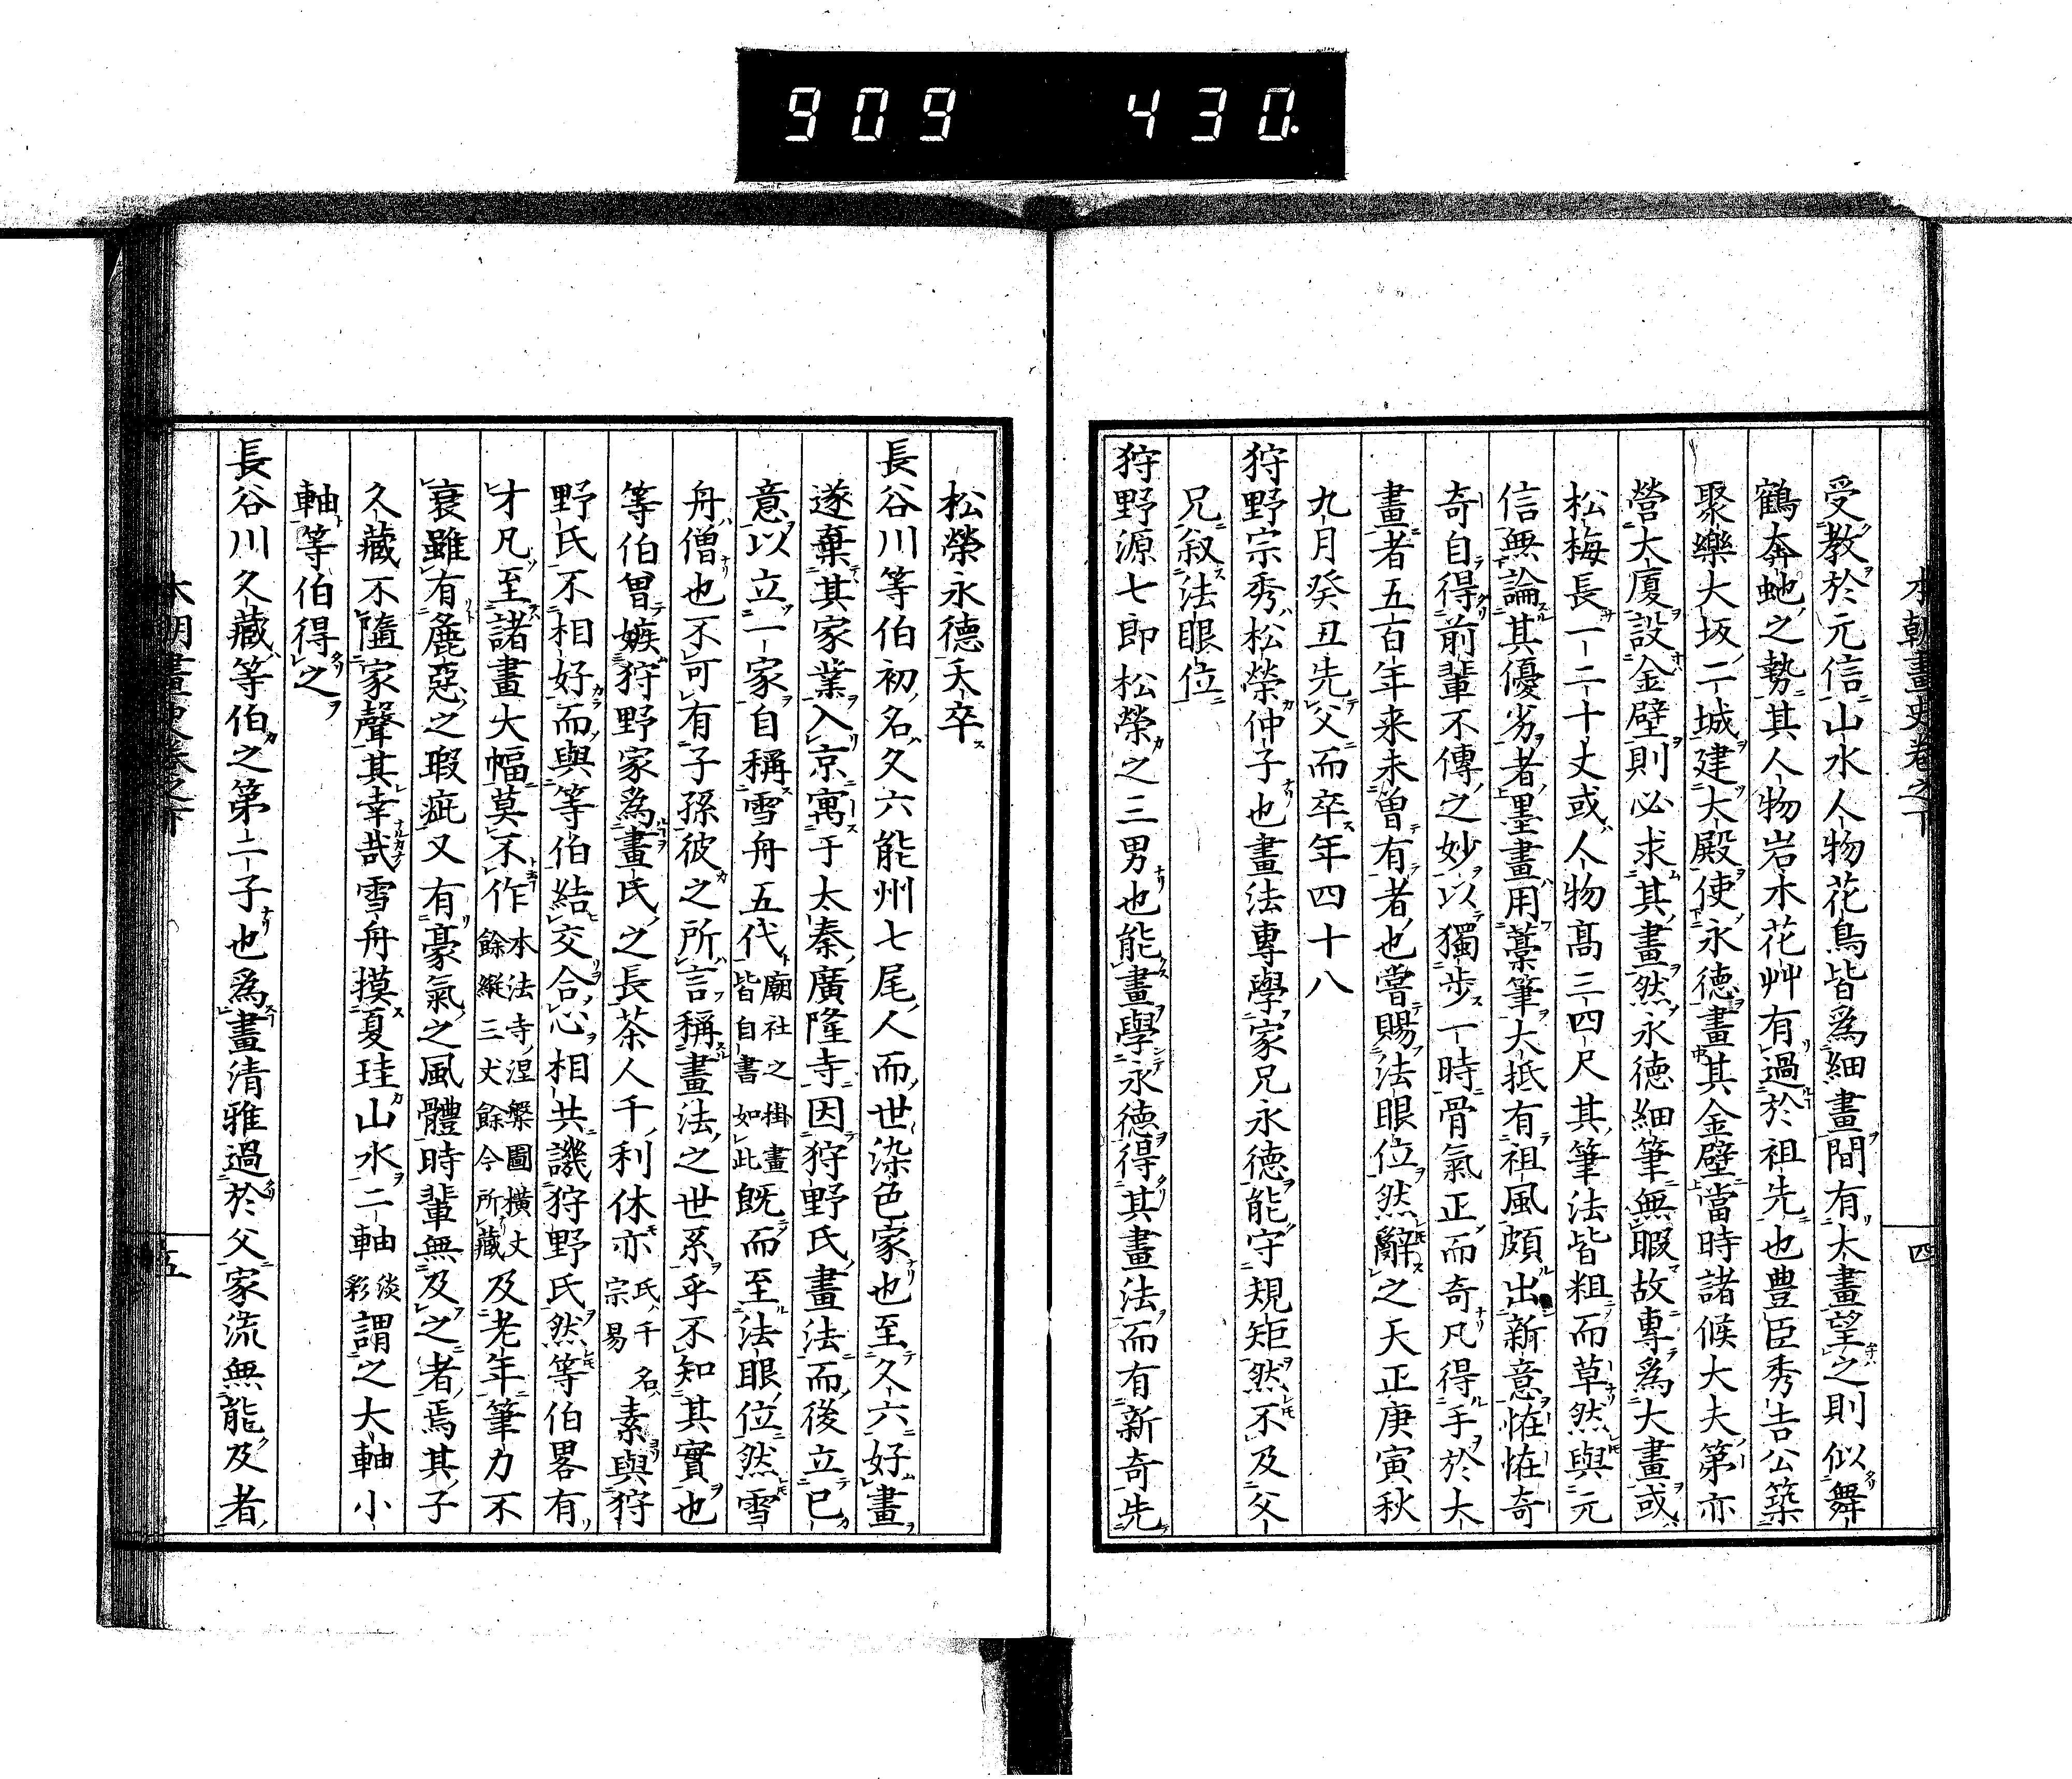 909 430.
本朝畫史卷之下
四
受教於元信山水人物花鳥皆爲細畫間有大畫望之則似舞
鶴奔蛇之勢其人物岩木花艸有過於祖先也豊臣秀吉公築
聚樂大坂二城建大殿使永德畫其金壁當時諸候大夫第亦
營大廈設金壁則必求其畫然永德細筆無暇故專爲大畫或
松梅長一二十丈或人物髙三四尺其筆法皆粗而草然與元
信無論其優劣者墨畫用藁筆大抵有祖風頗出新意恠恠奇
奇自得前輩不傳之妙以獨步一時骨氣正而奇凡得手於大
畫者五百年来未曽有者也嘗賜法眼位然辭之天正庚寅秋
九月癸丑先父而卒年四十八
狩野宗秀松榮仲子也畫法專學家兄永德能守規矩然不及父
兄叙法眼位
狩野源七郎松榮之三男也能畫學永德得其畫法而有新奇先
松榮永德夭卒
長谷川等伯初名久六能州七尾人而世染色家也至久六好畫
遂棄其家業入京寓于太秦廣隆寺因狩野氏畫法而後立已
意以立一家自稱雪舟五代廟社之掛畫皆自書如此既而至法眼位然雪
舟僧也不可有子孫彼之所言稱畫法之世系乎不知其實也
等伯曾嫉狩野家爲畫氏之長茶人千利休亦氏千名宗易素與狩
野氏不相好而與等伯結交合心相共譏狩野氏然等伯畧有
才凡至諸畫大幅莫不作本法寺涅槃圖橫丈餘縱三丈餘今所藏及老年筆力不
衰雖有麁惡之瑕疵又有豪氣之風體時輩無及之者焉其子
久藏不隨家聲其幸哉雪舟摸夏珪山水二軸淡彩謂之大軸小
軸等伯得之
長谷川久藏等伯之第二子也爲畫清雅過於父家流無能及者
本朝畫史卷之下
五